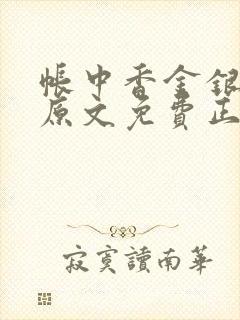 帳中香金銀
原文免費正
寂寞讀南華